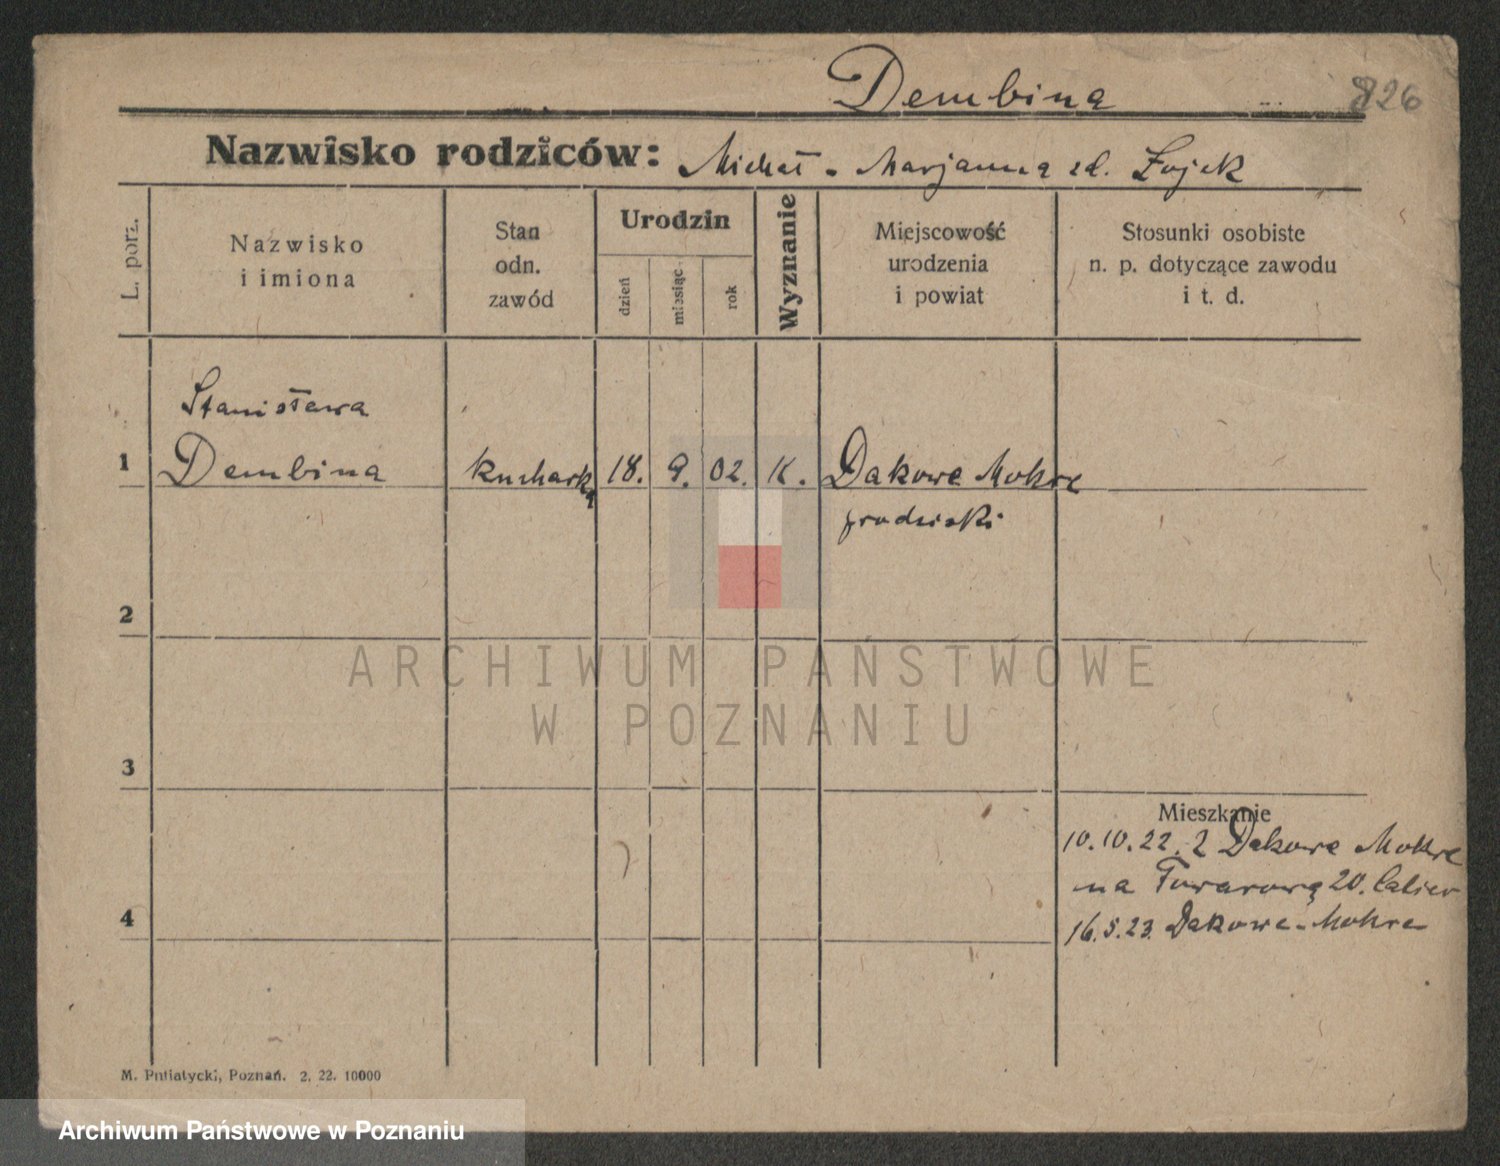 Dembina
826
Nazwisko rodziców: Michał - Marjanna zd. Zujek
L. porz.
Nazwisko
i imiona
Stan
odn.
zawód
Urodzin
dzień
miesiąc
rok
Wyznanie
Miejscowość
urodzenia
i powiat
Stosunki osobiste
n. p. dotyczące zawodu
i t. d.
Stanisława
1 Dembina kucharka 18. 9. 02. K. Dakowe Mokre
grodziski
2
ARCHIWUM PAŃSTWOWE
W POZNANIU
3
Mieszkanie
10.10.22. z Dakowe Mokre
na Towarową 20.
4
16.5.23. Dakowe-Mokre
M. Putiatycki, Poznań. 2. 22. 10000
Archiwum Państwowe w Poznaniu